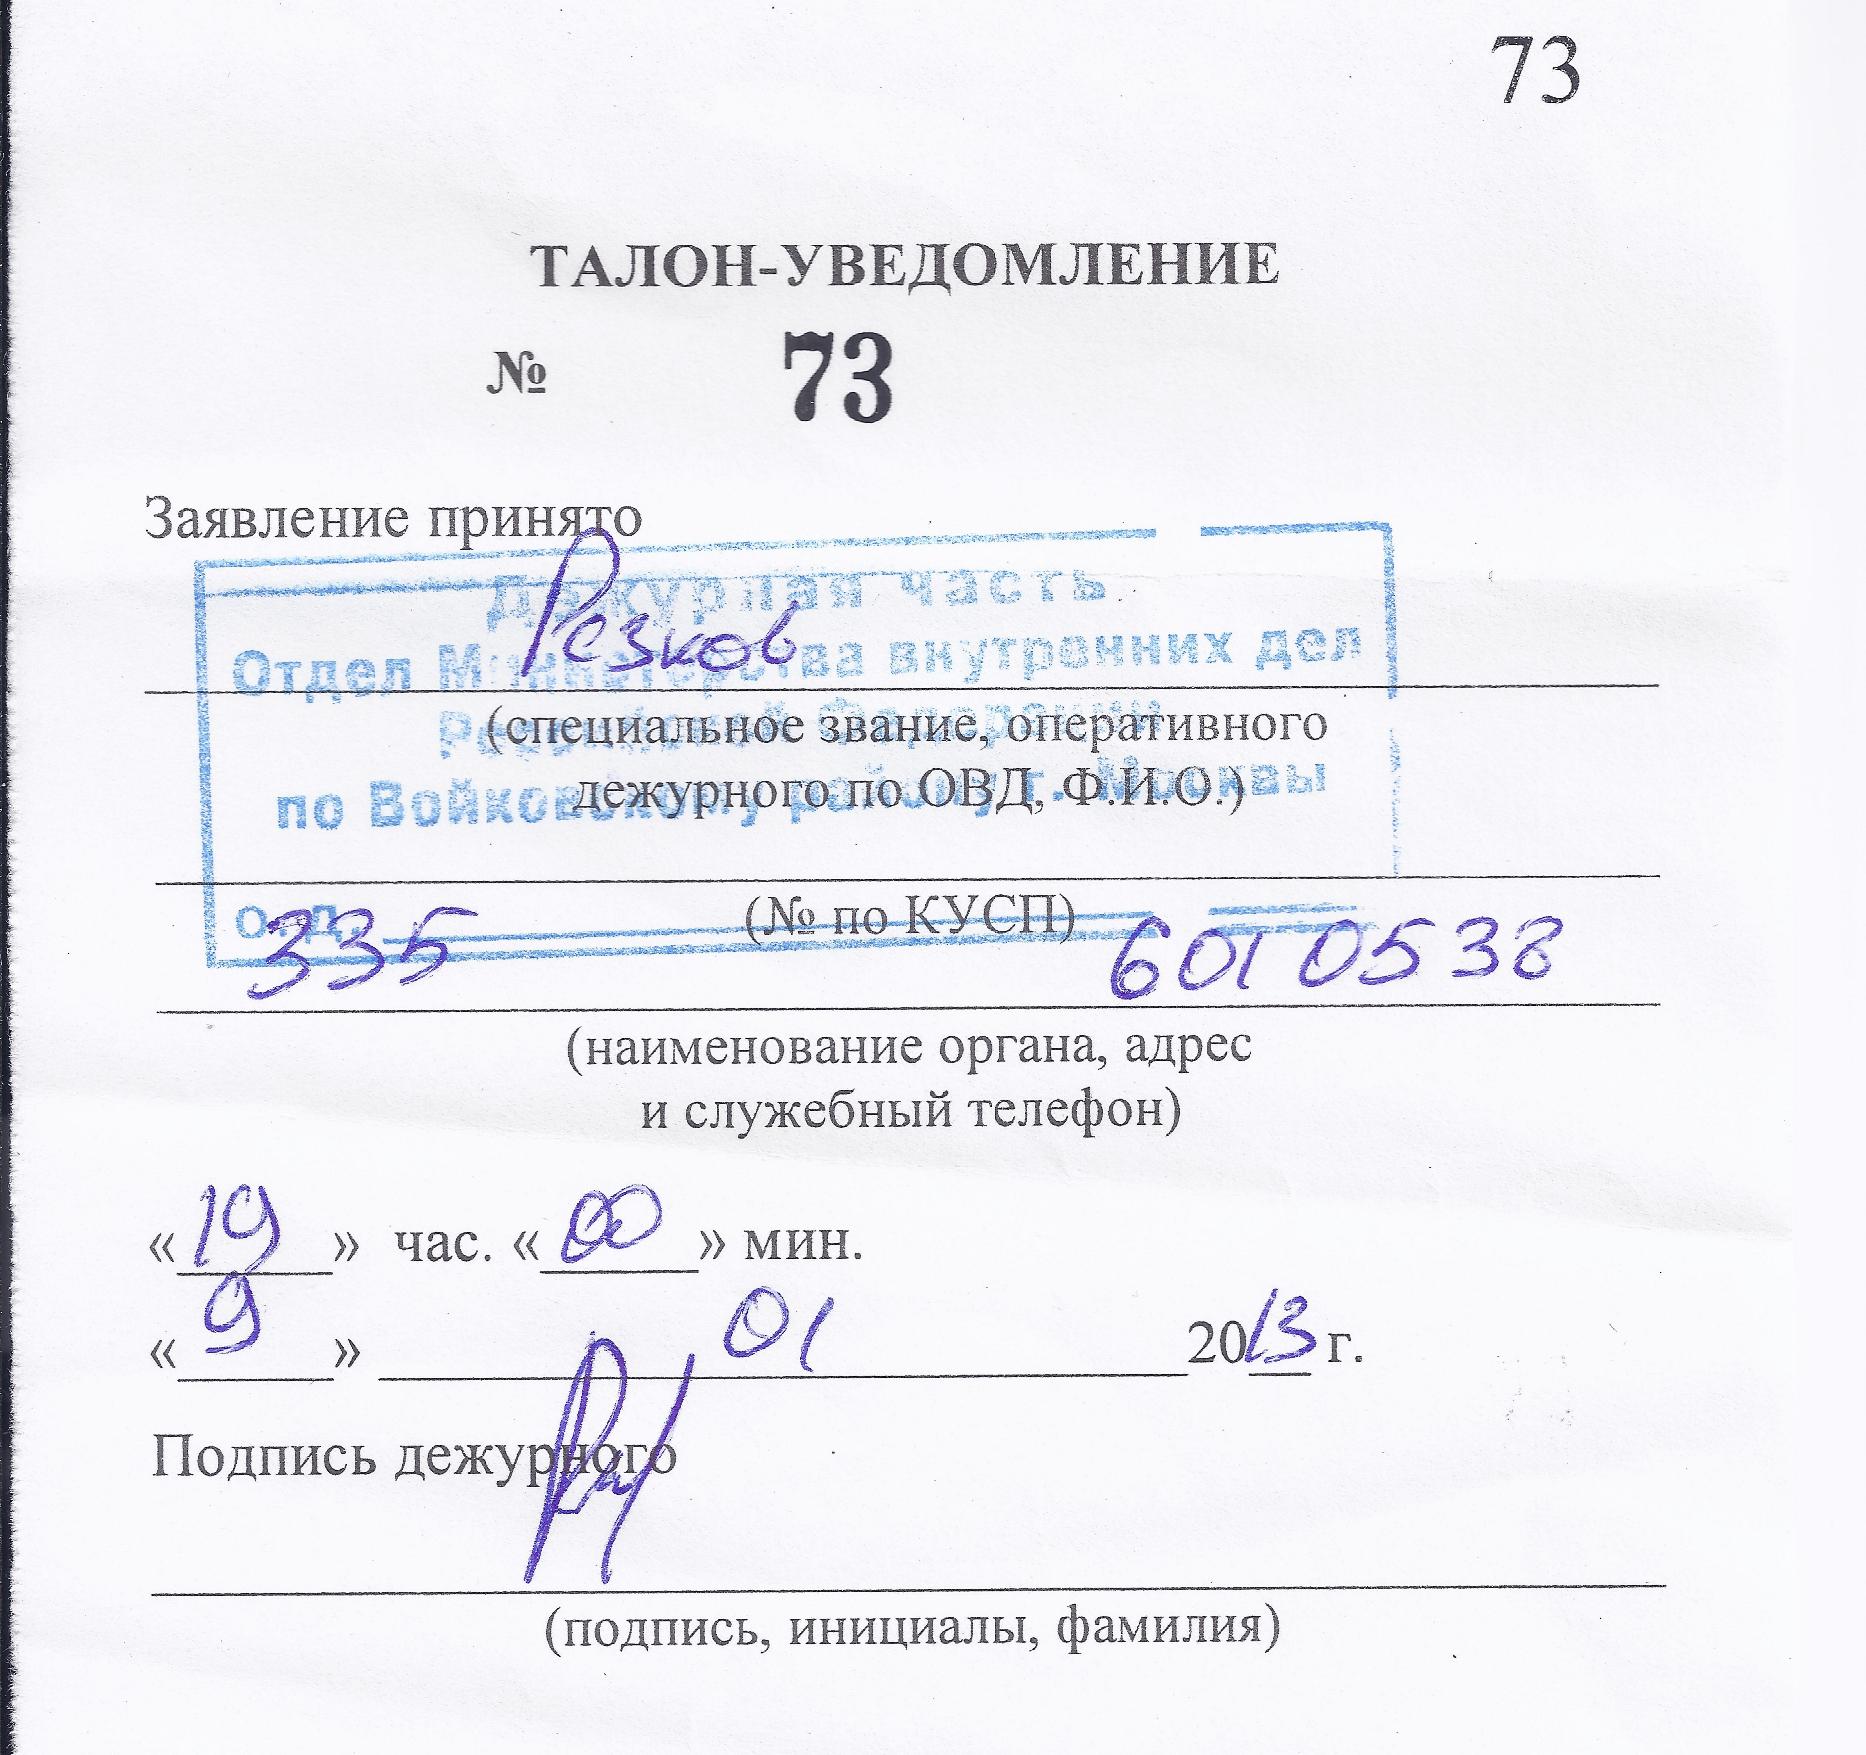 73
ТАЛОН-УВЕДОМЛЕНИЕ
№ 73
Заявление принято
Дежурная часть
Резков
Отдел Министерства внутренних дел
Российской Федерации
(специальное звание, оперативного
по Войковскому району г. Москвы
дежурного по ОВД, Ф.И.О.)
О.Д.
(№ по КУСП)
335 601 05 38
(наименование органа, адрес
и служебный телефон)
«19» час. «00» мин.
«9» 01 2013 г.
Подпись дежурного
(подпись, инициалы, фамилия)